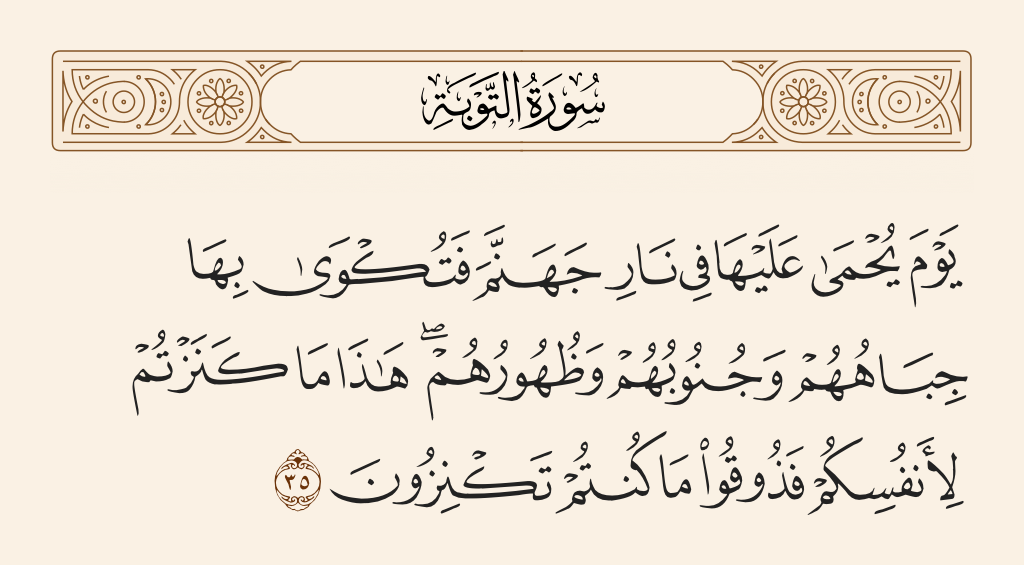 سُورَةُ التَّوْبَةِ
يَوْمَ يُحْمَىٰ عَلَيْهَا فِي نَارِ جَهَنَّمَ فَتُكْوَىٰ بِهَا
جِبَاهُهُمْ وَجُنُوبُهُمْ وَظُهُورُهُمْ ۖ هَٰذَا مَا كَنَزْتُمْ
لِأَنفُسِكُمْ فَذُوقُوا۟ مَا كُنتُمْ تَكْنِزُونَ ٣٥